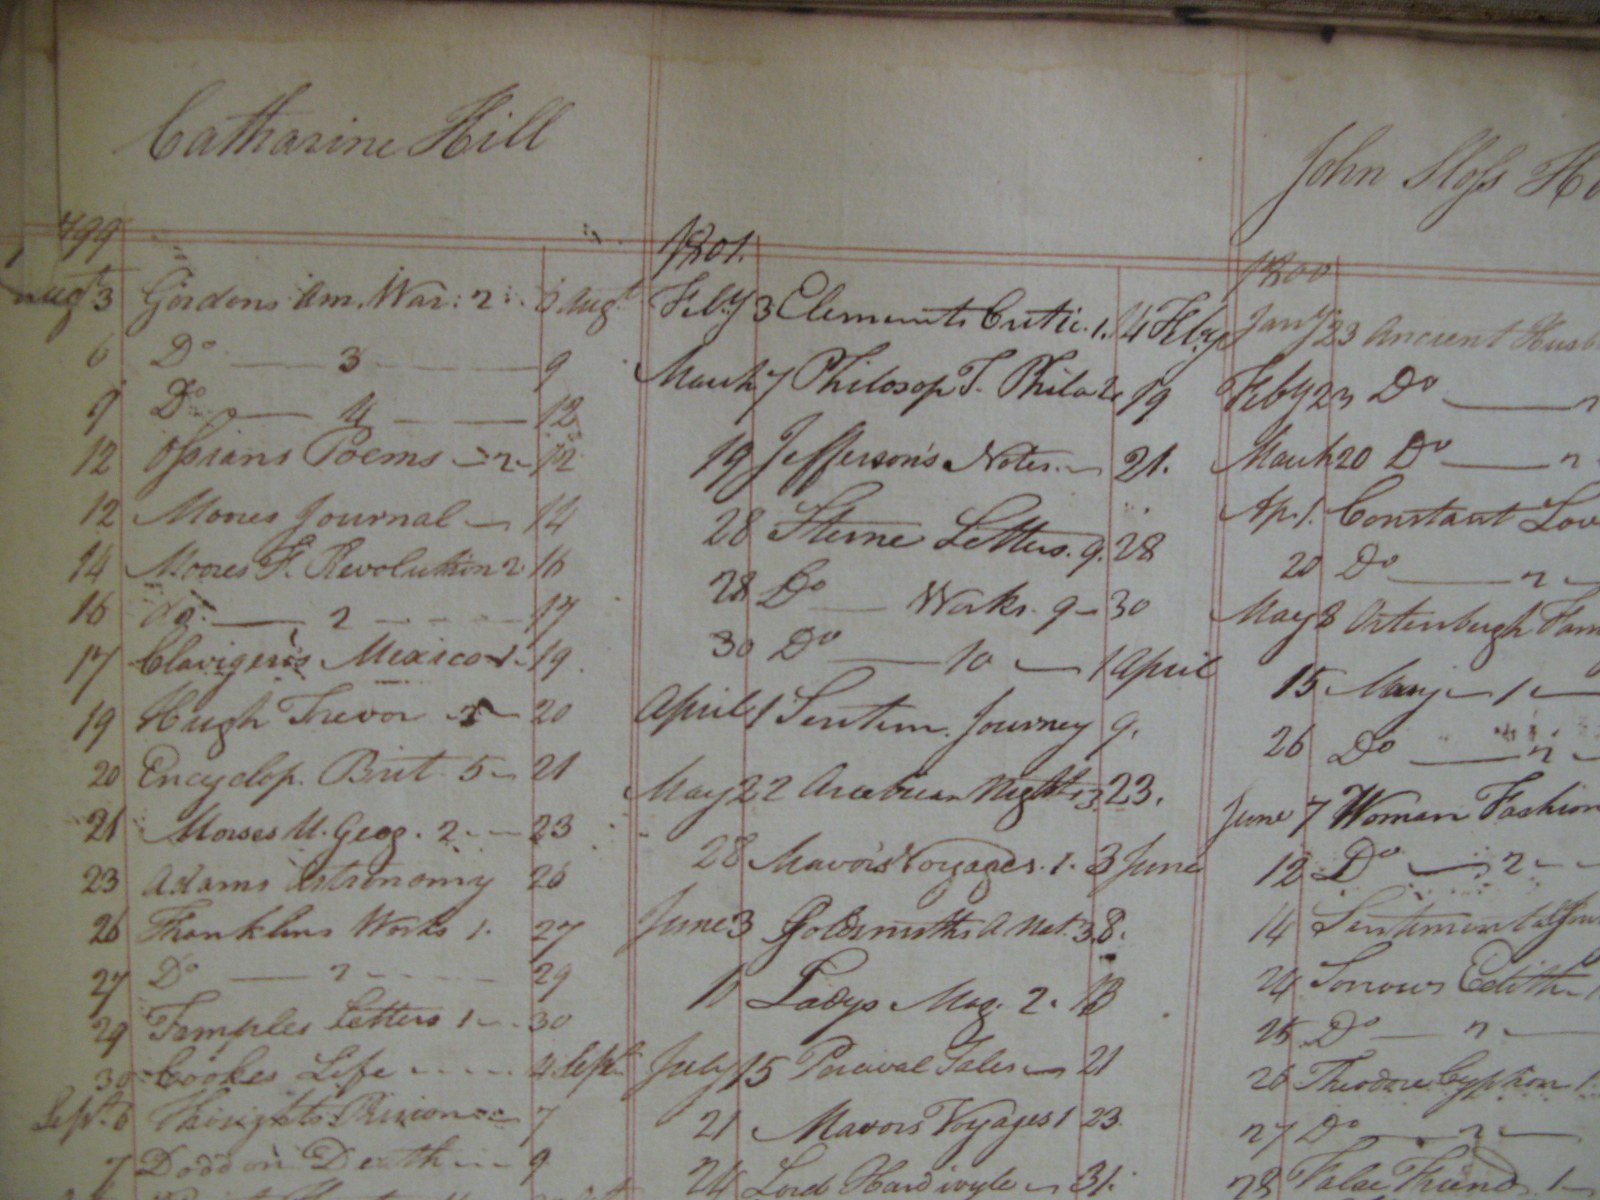 Catharine Hill
1799
Augt 3 Gordons Am. War: 2 6 Augt
6 Do 3 9
9 Do 4 12
12 Ossians Poems 2 12
12 Moores Journal 14
14 Moores F. Revolution 2 16
16 do. 2 17
17 Clavigero's Mexico 1 19
19 Hugh Trevor 20
20 Encyclop. Brit 5 21
21 Morses U. Geog. 2 23
23 Adams Astronomy 26
26 Franklins Works 1. 27
27 Do 2 29
29 Temples Letters 1 30
30 Cookes Life 4 Sept
Sept. 6 Thoughts 7
7 Dodd on Death 9
1801.
Feby 3 Elements Critic. 1. 14 Feby
March 7 Philosop T. Phila 2 19
19 Jefferson's Notes 21.
28 Sterne Letters. 9. 28
28 Do Works. 9 30
30 Do 10 1 April
April 1 Sentim. Journey 9.
May 22 Arabian Nights 3 23.
28 Mavors Voyages. 1. 3 June
June 3 Goldsmiths A Nat. 3 8.
10 Ladys Mag. 2. 13
July 15 Percival Tales 21
21 Mavors Voyages 1 23
24 Lord Hardivyle 31.
John Sloss
1800
Jany 23 Ancient
Feby 23 Do 2
March 20 Do 2
Ap. 1. Constant
20 Do 2
May 8 Ortenburgh Fam
15 Mary 1
26 Do 2
June 7 Woman Fashion
12 Do 2
14 Sentimental
24 Sorrows Edith 1
25 Do 2
26 Theodore Cyphon 1
27 Do 2
28 False Friend 1